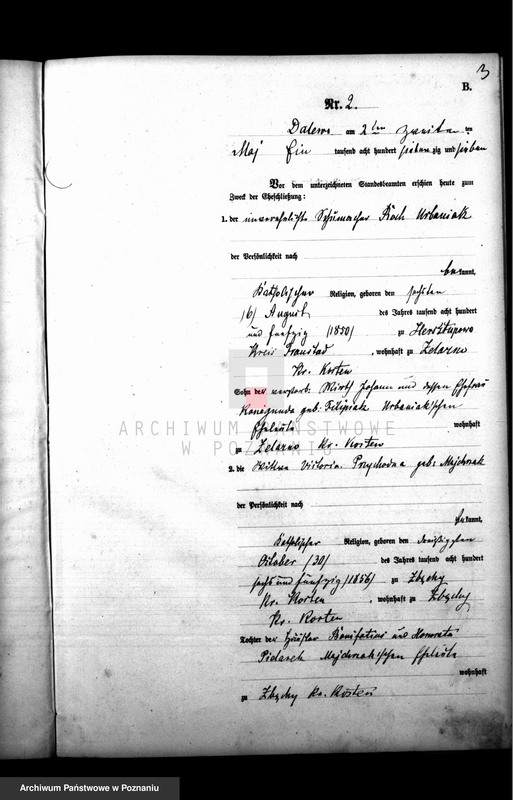 3
B.
Nr. 2.
Dalewo am 2ten zweiten ten
Maj Ein tausend acht hundert sieben zig und sieben
Vor dem unterzeichneten Standesbeamten erschien heute zum
Zweck der Eheschließung:
1. der unverehelichte Schumacher Roch Urbaniak
der Persönlichkeit nach
bekannt,
Katholischer Religion, geboren den sechsten
/6/ August des Jahres tausend acht hundert
und funfzig /1850/ zu
Kreis Fraustad, wohnhaft zu Zelazno
Kr. Kosten
Sohn des verstorb. Wirth Johann und dessen Ehefrau
Konegunda geb: Filipiak Urbaniak'schen
Eheleute wohnhaft
zu Zelazno Kr. Kosten
ARCHIWUM PAŃSTWOWE
W POZNANIU
2. die Wittwe Victoria Przychodna geb: Majchrzak
der Persönlichkeit nach
bekannt,
Katholischer Religion, geboren den dreißigsten
October /30/ des Jahres tausend acht hundert
sechs und funfzig /1856/ zu Zbęchy
Kr. Kosten, wohnhaft zu Zbęchy
Kr. Kosten
Tochter der Häusler Bonifatius und Honorata
Majchrzak'schen Eheleute
wohnhaft
zu Zbęchy Kr. Kosten
Archiwum Państwowe w Poznaniu